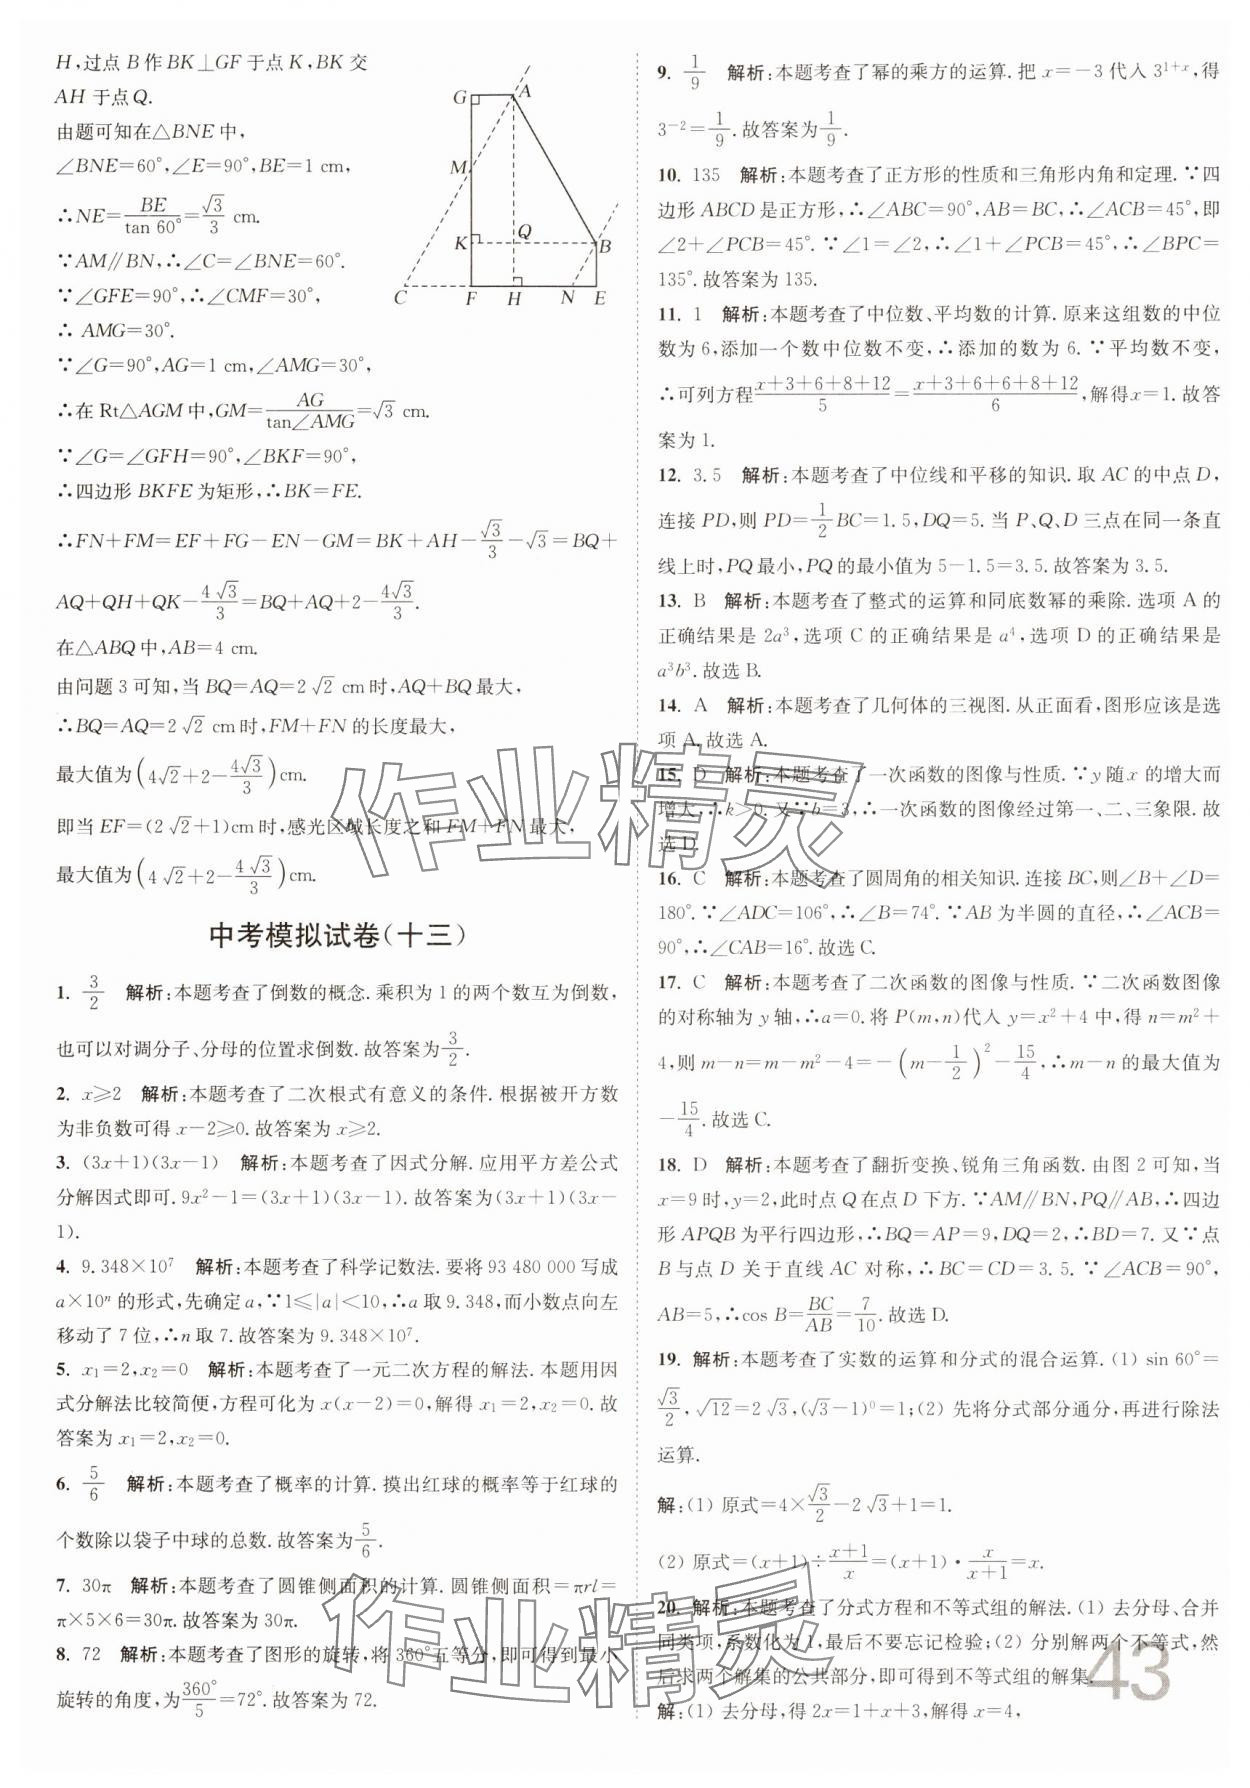 H,过点B作BK⊥GF于点K,BK交
AH于点Q.
由题可知在△BNE中,
∠BNE=60°,∠E=90°,BE=1 cm,
∴NE=BE/tan 60°=√3/3 cm.
∵AM∥BN,∴∠C=∠BNE=60°.
∵∠GFE=90°,∴∠CMF=30°,
∴ AMG=30°.
∵∠G=90°,AG=1 cm,∠AMG=30°,
∴在Rt△AGM中,GM=AG/tan∠AMG=√3 cm.
∵∠G=∠GFH=90°,∠BKF=90°,
∴四边形BKFE为矩形,∴BK=FE.
∴FN+FM=EF+FG-EN-GM=BK+AH-√3/3-√3=BQ+
AQ+QH+QK-4√3/3=BQ+AQ+2-4√3/3.
在△ABQ中,AB=4 cm.
由问题3可知,当BQ=AQ=2√2 cm时,AQ+BQ最大,
∴BQ=AQ=2√2 cm时,FM+FN的长度最大,
最大值为(4√2+2-4√3/3)cm.
即当EF=(2√2+1)cm时,感光区域长度之和FM+FN最大,
最大值为(4√2+2-4√3/3)cm.
G A M K Q B C F H N E
中考模拟试卷(十三)
1. 3/2 解析:本题考查了倒数的概念.乘积为1的两个数互为倒数,
也可以对调分子、分母的位置求倒数.故答案为3/2.
2. x≥2 解析:本题考查了二次根式有意义的条件.根据被开方数
为非负数可得x-2≥0.故答案为x≥2.
3. (3x+1)(3x-1) 解析:本题考查了因式分解.应用平方差公式
分解因式即可.9x²-1=(3x+1)(3x-1).故答案为(3x+1)(3x-
1).
4. 9.348×10⁷ 解析:本题考查了科学记数法.要将93 480 000写成
a×10ⁿ的形式,先确定a,∵1≤|a|<10,∴a取9.348,而小数点向左
移动了7位,∴n取7.故答案为9.348×10⁷.
5. x₁=2,x₂=0 解析:本题考查了一元二次方程的解法.本题用因
式分解法比较简便,方程可化为x(x-2)=0,解得x₁=2,x₂=0.故
答案为x₁=2,x₂=0.
6. 5/6 解析:本题考查了概率的计算.摸出红球的概率等于红球的
个数除以袋子中球的总数.故答案为5/6.
7. 30π 解析:本题考查了圆锥侧面积的计算.圆锥侧面积=πrl=
π×5×6=30π.故答案为30π.
8. 72 解析:本题考查了图形的旋转,将360°五等分,即可得到最小
旋转的角度,为360°/5=72°.故答案为72.
9. 1/9 解析:本题考查了幂的乘方的运算.把x=-3代入3¹⁺ˣ,得
3⁻²=1/9.故答案为1/9.
10. 135 解析:本题考查了正方形的性质和三角形内角和定理.∵四
边形ABCD是正方形,∴∠ABC=90°,AB=BC,∴∠ACB=45°,即
∠2+∠PCB=45°.∵∠1=∠2,∴∠1+∠PCB=45°,∴∠BPC=
135°.故答案为135.
11. 1 解析:本题考查了中位数、平均数的计算.原来这组数的中位
数为6,添加一个数中位数不变,∴添加的数为6.∵平均数不变,
∴可列方程(x+3+6+8+12)/5=(x+3+6+6+8+12)/6,解得x=1.故答
案为1.
12. 3.5 解析:本题考查了中位线和平移的知识.取AC的中点D,
连接PD,则PD=1/2BC=1.5,DQ=5.当P、Q、D三点在同一条直
线上时,PQ最小,PQ的最小值为5-1.5=3.5.故答案为3.5.
13. B 解析:本题考查了整式的运算和同底数幂的乘除.选项A的
正确结果是2a³,选项C的正确结果是a⁴,选项D的正确结果是
a³b³.故选B.
14. A 解析:本题考查了几何体的三视图.从正面看,图形应该是选
项A.故选A.
15. D 解析:本题考查了一次函数的图像与性质.∵y随x的增大而
增大,∴k>0.又∵b=3,∴一次函数的图像经过第一、二、三象限.故
选D.
16. C 解析:本题考查了圆周角的相关知识.连接BC,则∠B+∠D=
180°.∵∠ADC=106°,∴∠B=74°.∵AB为半圆的直径,∴∠ACB=
90°,∴∠CAB=16°.故选C.
17. C 解析:本题考查了二次函数的图像与性质.∵二次函数图像
的对称轴为y轴,∴a=0.将P(m,n)代入y=x²+4中,得n=m²+
4,则m-n=m-m²-4=-(m-1/2)²-15/4,∴m-n的最大值为
-15/4.故选C.
18. D 解析:本题考查了翻折变换、锐角三角函数.由图2可知,当
x=9时,y=2,此时点Q在点D下方.∵AM∥BN,PQ∥AB,∴四边
形APQB为平行四边形,∴BQ=AP=9,DQ=2,∴BD=7.又∵点
B与点D关于直线AC对称,∴BC=CD=3.5.∵∠ACB=90°,
AB=5,∴cos B=BC/AB=7/10.故选D.
19. 解析:本题考查了实数的运算和分式的混合运算.(1) sin 60°=
√3/2,√12=2√3,(√3-1)⁰=1;(2) 先将分式部分通分,再进行除法
运算.
解:(1) 原式=4×√3/2-2√3+1=1.
(2) 原式=(x+1)÷(x+1)/x=(x+1)·x/(x+1)=x.
20. 解析:本题考查了分式方程和不等式组的解法.(1) 去分母、合并
同类项,系数化为1,最后不要忘记检验;(2) 分别解两个不等式,然
后求两个解集的公共部分,即可得到不等式组的解集.
解:(1) 去分母,得2x=1+x+3,解得x=4,
43
作业精灵
作业精灵